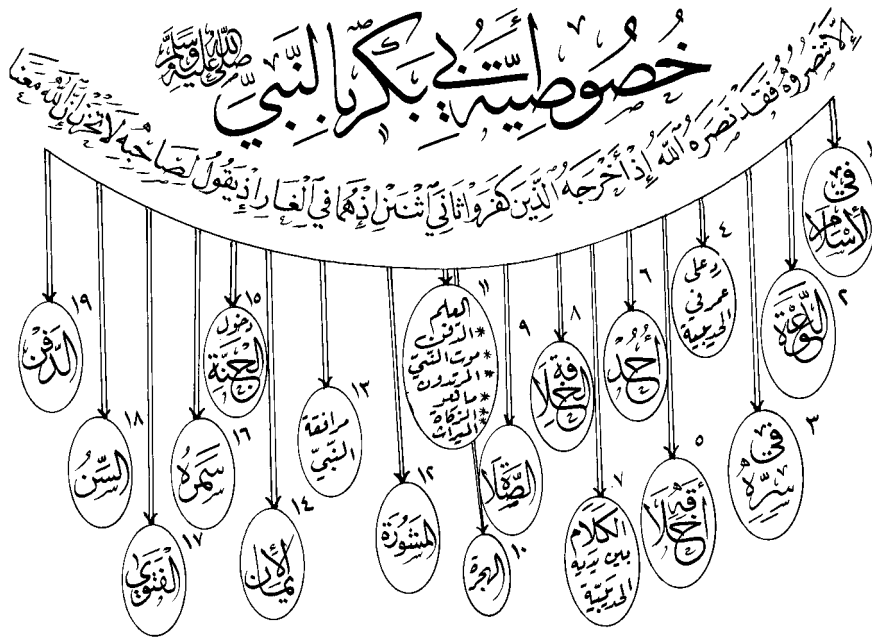 خصوصية أبي بكر بالنبي ﷺ
إلا تنصروه فقد نصره الله إذ أخرجه الذين كفروا ثاني اثنين إذ هما في الغار إذ يقول لصاحبه لا تحزن إن الله معنا
١
في
الإسلام
٢
الدعوة
٣
في
سره
٤
رد على
عمر في
الحديبية
٥
أخلاقه
٦
أحد
٧
الكلام
بين يديه
الحديبية
٨
الخلافة
٩
الصلاة
١٠
الهجرة
١١
العلم
* الدفن
* موت النبي
* المرتدون
* ما نعو
* الزكاة
* الميراث
١٢
المشورة
١٣
مرافقة
النبي
١٤
الإيمان
١٥
دخول
الجنة
١٦
سمره
١٧
الفتوى
١٨
السن
١٩
الدفن